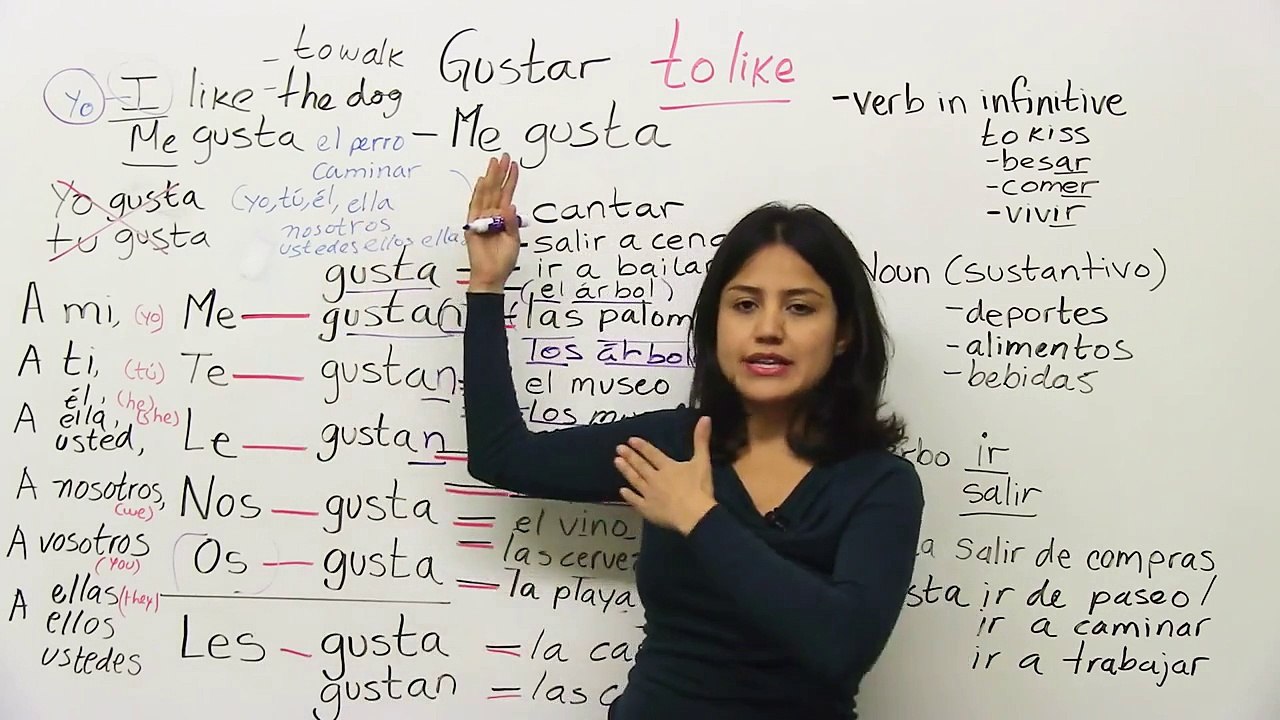 - to walk
Gustar to like
Yo I like - the dog
Me gusta el perro
caminar
- Me gusta
Yo gusta
tu gusta
(yo, tú, él, ella
nosotros
ustedes ellos ellas
- cantar
- salir a cena
gusta = - ir a bailar
(el árbol)
A mi, (yo) Me — gustan las palom
los árbol
A ti, (tú) Te — gustan el museo
él, (he)
A ella, (she) Le — gustan - Los
usted,
A nosotros, (we) Nos — gusta = el vino
las cerve
A vosotros (you) Os — gusta = la playa
A ellas (they)
ellos Les — gusta = la ca
ustedes
gustan = las c
- verb in infinitive
to kiss
- besar
- comer
- vivir
Noun (sustantivo)
- deportes
- alimentos
- bebidas
rbo ir
salir
a salir de compras
sta ir de paseo /
ir a caminar
ir a trabajar